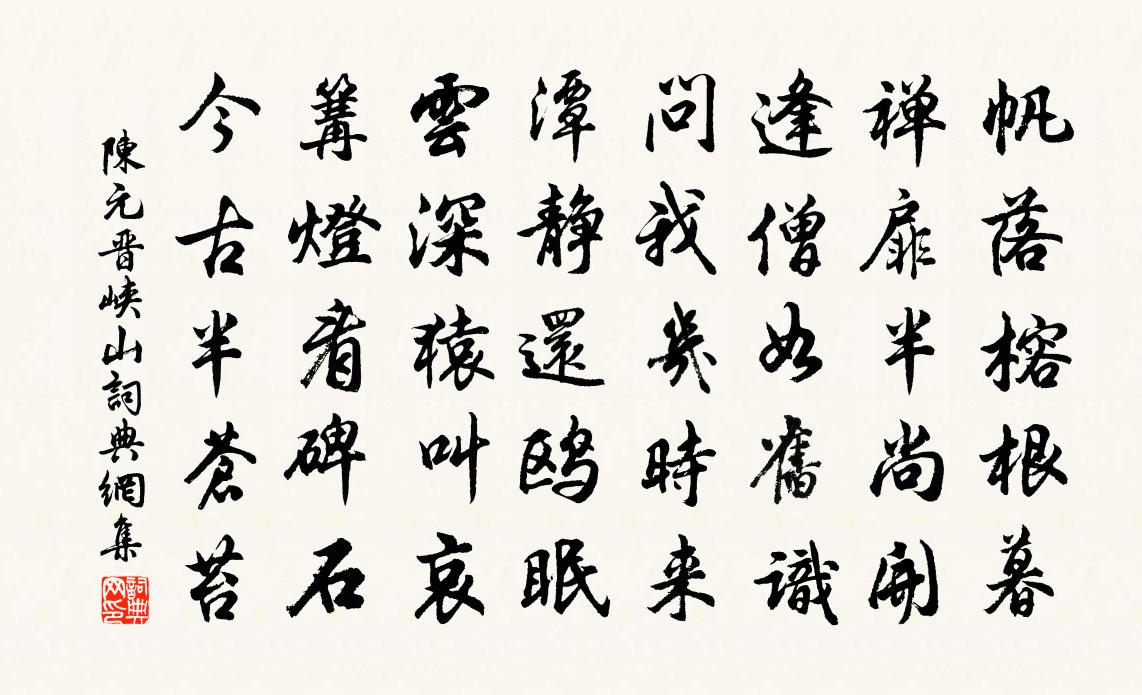 帆落榕根暮
禅扉半尚開
逢僧如舊識
問我幾時来
潭静還鸥眠
雲深猿叫哀
篝燈看碑石
今古半蒼苔
陳元晋峽山詞典網集
詞典网印